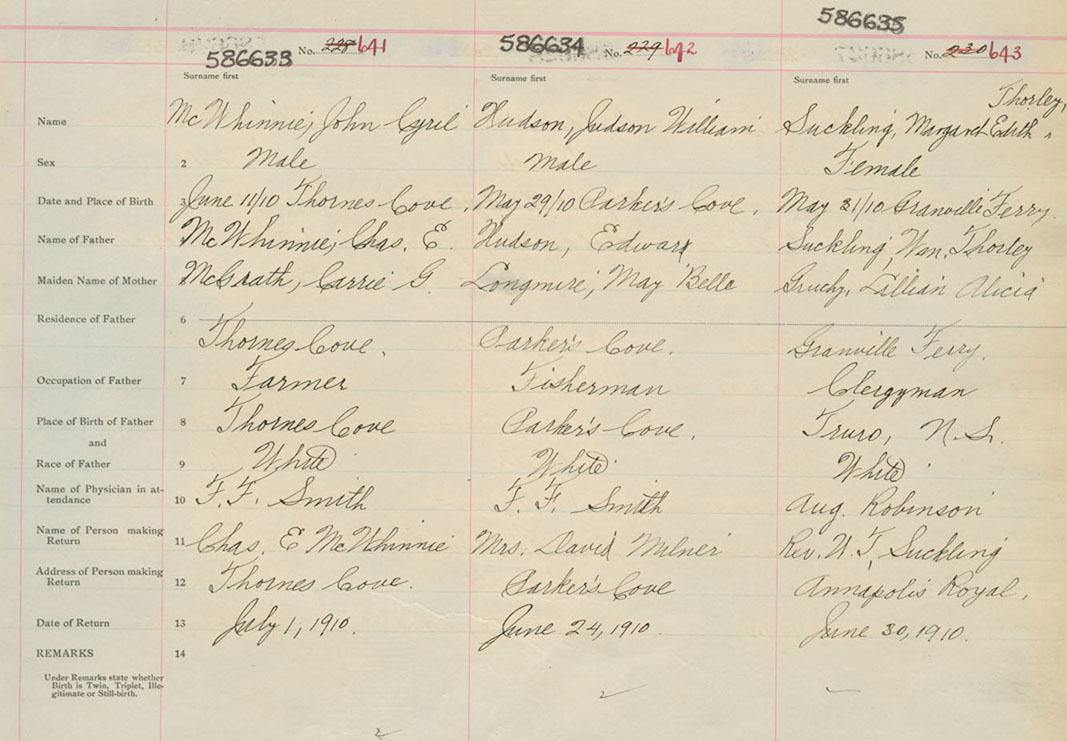 586633 No. 228 641
586634 No. 229 642
586635 No. 230 643
Surname first Surname first Surname first
Thorley,
Name McWhinnie, John Cyril Hudson, Judson William Suckling, Margaret Edith
Sex 2 Male Male Female
Date and Place of Birth 3 June 11/10 Thornes Cove. May 29/10 Parker's Cove. May 31/10 Granville Ferry.
Name of Father McWhinnie, Chas. E. Hudson, Edward Suckling, Wm. Thorley
Maiden Name of Mother McGrath, Carrie G. Longmire, May Belle Gruchy, Lillian Alicia
Residence of Father 6
Thornes Cove. Parker's Cove. Granville Ferry.
Occupation of Father 7 Farmer Fisherman Clergyman
Place of Birth of Father 8 Thornes Cove Parker's Cove. Truro, N.S.
and
Race of Father 9 White White White
Name of Physician in at-
tendance 10 F. F. Smith F. F. Smith Aug. Robinson
Name of Person making
Return 11 Chas. E McWhinnie Mrs. David Milner Rev. W. T. Suckling
Address of Person making
Return 12 Thornes Cove. Parker's Cove Annapolis Royal.
Date of Return 13 July 1, 1910. June 24, 1910. June 30, 1910.
REMARKS 14
Under Remarks state whether
Birth is Twin, Triplet, Ille-
gitimate or Still-birth.